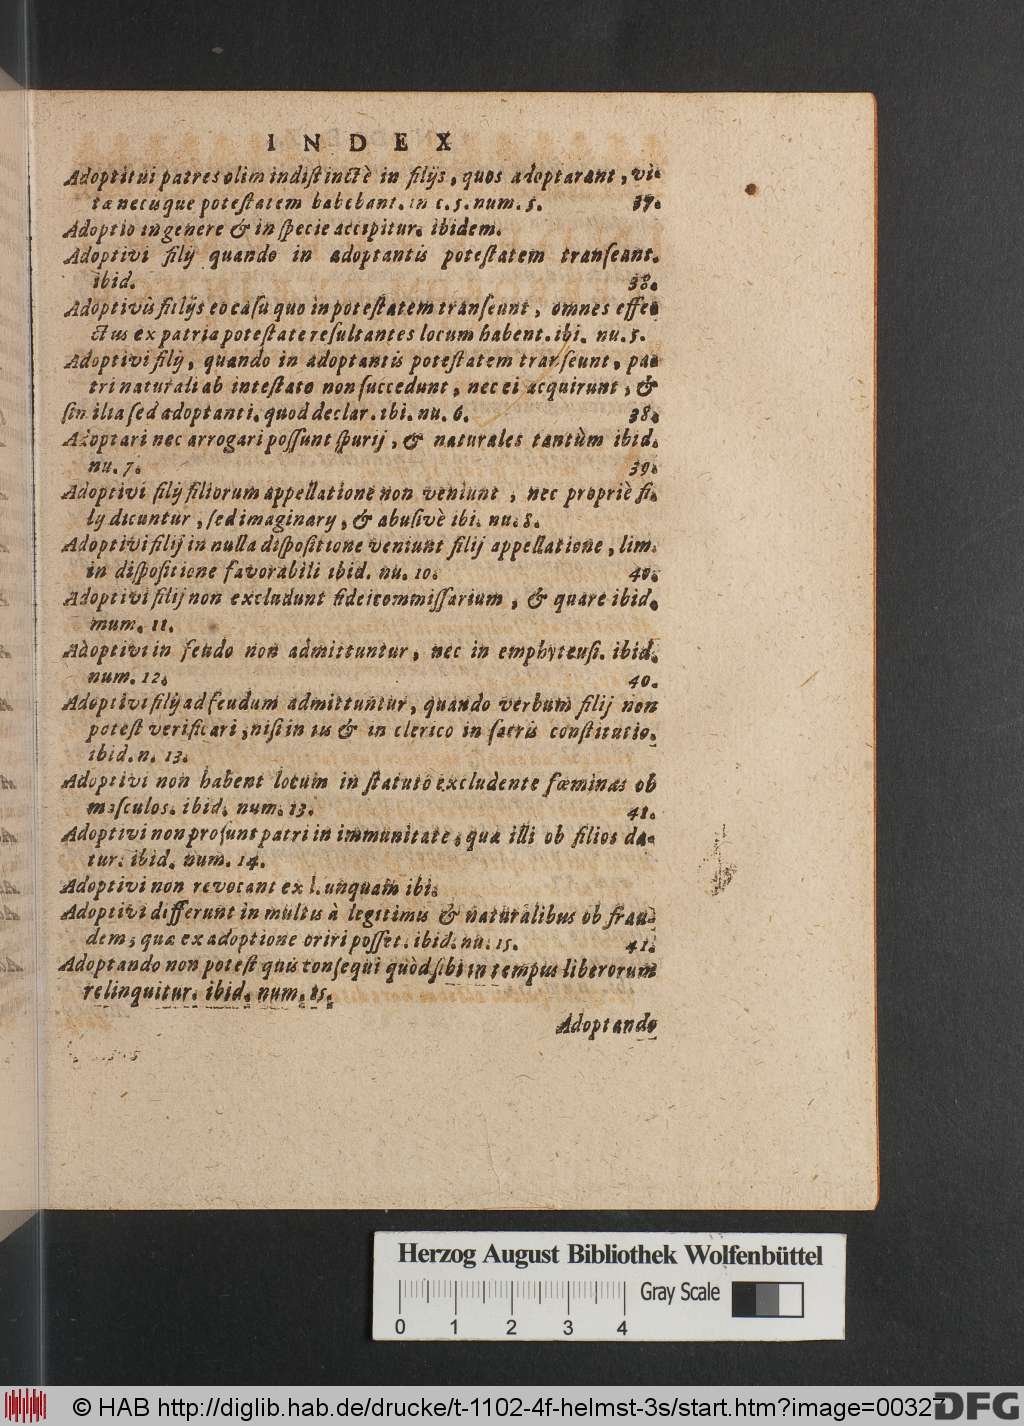 INDEX
Adoptivi patres olim indistinctè in filijs, quos adoptarant, vi-
tæ necisque potestatem habebant. in c. 5. num. 5. 37.
Adoptio in genere & in specie accipitur. ibidem.
Adoptivi filij quando in adoptantis potestatem transeant.
ibid. 38.
Adoptivis filijs eo casu quo in potestatem transeunt, omnes effe-
ctus ex patria potestate resultantes locum habent. ibi. nu. 5.
Adoptivi filij, quando in adoptantis potestatem transeunt, pa-
tri naturali ab intestato non succedunt, nec ei acquirunt, &
sin illa sed adoptanti. quod declar. ibi. nu. 6. 38.
Adoptari nec arrogari possunt spurij, & naturales tantùm ibid.
nu. 7. 39.
Adoptivi filij filiorum appellatione non veniunt, nec propriè fi-
lij dicuntur, sed imaginary, & abusivè ibi. nu. 8.
Adoptivi filij in nulla dispositione veniunt filij appellatione, lim.
in dispositione favorabili ibid. nu. 10. 40.
Adoptivi filij non excludunt fideicommissarium, & quare ibid.
mum. 11.
Adoptivi in feudo non admittuntur, nec in emphyteusi. ibid.
num. 12. 40.
Adoptivi filij ad feudum admittuntur, quando verbum filij non
potest verificari, nisi in iis & in clerico in sacris constitutio.
ibid. n. 13.
Adoptivi non habent locum in statuto excludente fœminas ob
masculos. ibid. num. 13. 41.
Adoptivi non prosunt patri in immunitate, quæ illi ob filios da-
tur. ibid. num. 14.
Adoptivi non revocant ex l. unquam ibi.
Adoptivi differunt in multis à legitimis & naturalibus ob frau-
dem, quæ ex adoptione oriri posset. ibid. nu. 15. 41.
Adoptando non potest quis consequi quòd sibi in tempus liberorum
relinquitur. ibid. num. 15.
Adoptando
Herzog August Bibliothek Wolfenbüttel
Gray Scale
0 1 2 3 4
© HAB http://diglib.hab.de/drucke/t-1102-4f-helmst-3s/start.htm?image=00327
DFG